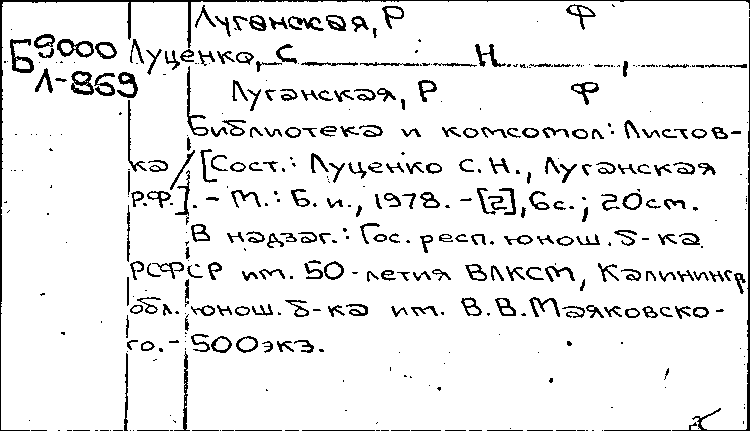 Луганская, Р Ф
Б9000 Луценко, С Н ,
Л-869
Луганская, Р Ф
Библиотека и комсомол: Листов-
ка / [Сост.: Луценко С.Н., Луганская
Р.Ф.]. - М.: Б. и., 1978. - [2], 6с.; 20см.
В надзаг.: Гос. респ. юнош. б-ка
РСФСР им. 50-летия ВЛКСМ, Калинингр.
обл. юнош. б-ка им. В.В.Маяковско-
го. - 500экз.